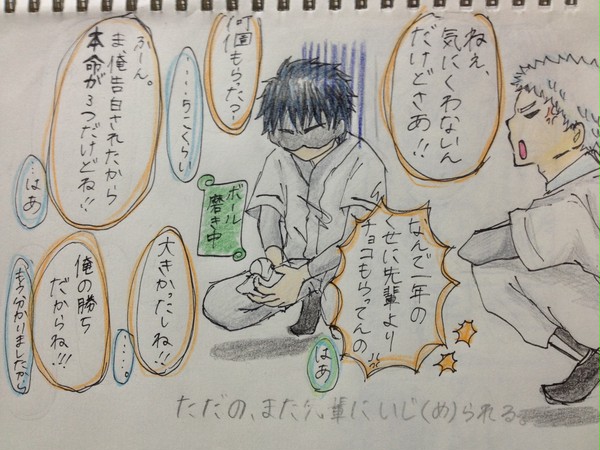 ねぇ、
気にくわないん
だけどさあ!!
なんで一年の
くせに先輩より
チョコもらってんの
はあ
ボール
磨き中
何個もらった?
・・・・5こくらい
ふーん。
ま俺告白されたから
本命が3つだけどね!!
…はあ
大きかったしね!!
・・・・。
俺の勝ち
だからね!!!
もう分かりましたから
ただの、また先輩にいじ(め)られる。